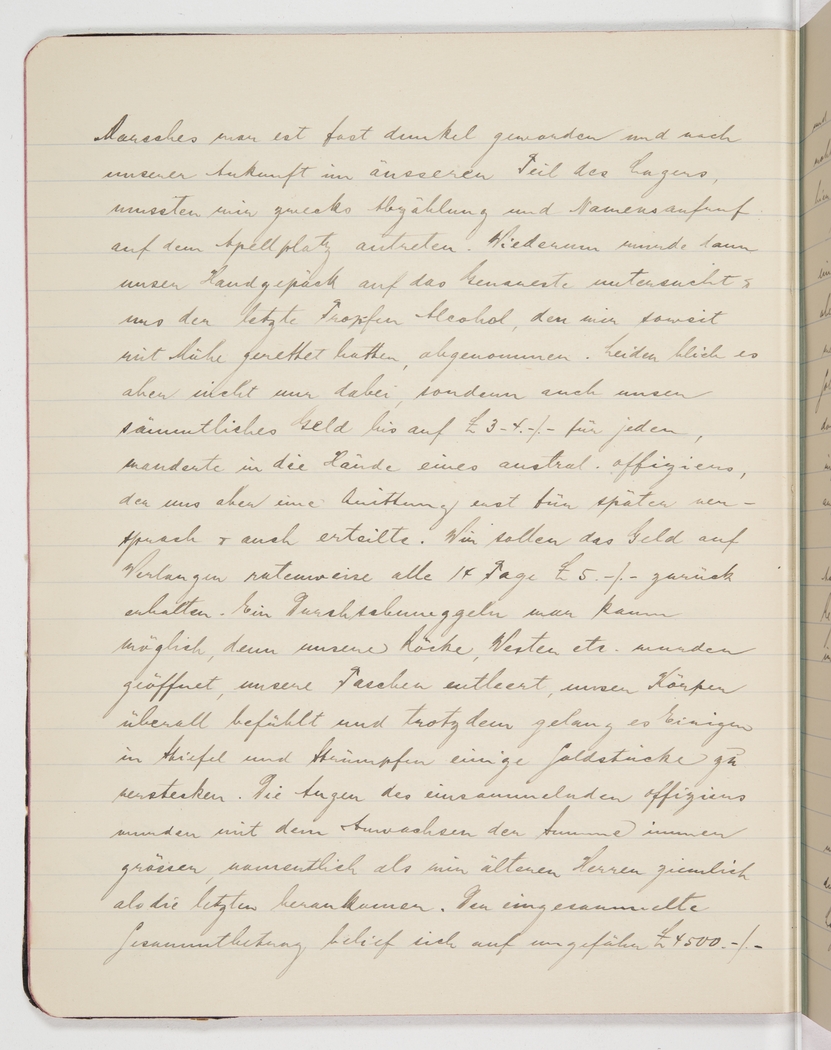 Marsches war es fast dunkel geworden und nach
unserer Ankunft im äusseren Teil des Lagers,
mussten wir zwecks Abzählung und Namensaufruf
auf dem Apellplatz antreten. Wiederum wurde dann
unser Handgepäck auf das Genaueste untersucht &
uns der letzte Tropfen Alcohol, den wir soweit
mit Mühe gerettet hatten, abgenommen. Leider blieb es
aber nicht nur dabei, sondern auch unser
sämmtliches Geld bis auf £ 3-4.-/.- für jeden,
wanderte in die Hände eines austral. Offiziers,
der uns aber eine Quittung erst für später ver-
sprach & auch erteilte. Wir sollten das Geld auf
Verlangen ratenweise alle 14 Tage £ 5.-/.- zurück
erhalten. Ein Durchschmuggeln war kaum
möglich, denn unsere Röcke, Westen etc. wurden
geöffnet, unsere Taschen entleert, unser Körper
überall befühlt und trotzdem gelang es Einigen
in Stiefel und Strümpfen einige Goldstücke zu
verstecken. Die Augen des einsammelnden Offiziers
wurden mit dem Anwachsen der Summe immer
grösser, namentlich als wir älteren Herren ziemlich
als die letzten herankamen. Der eingesammelte
Gesammtbetrag belief sich auf ungefähr £ 4500.-/.-